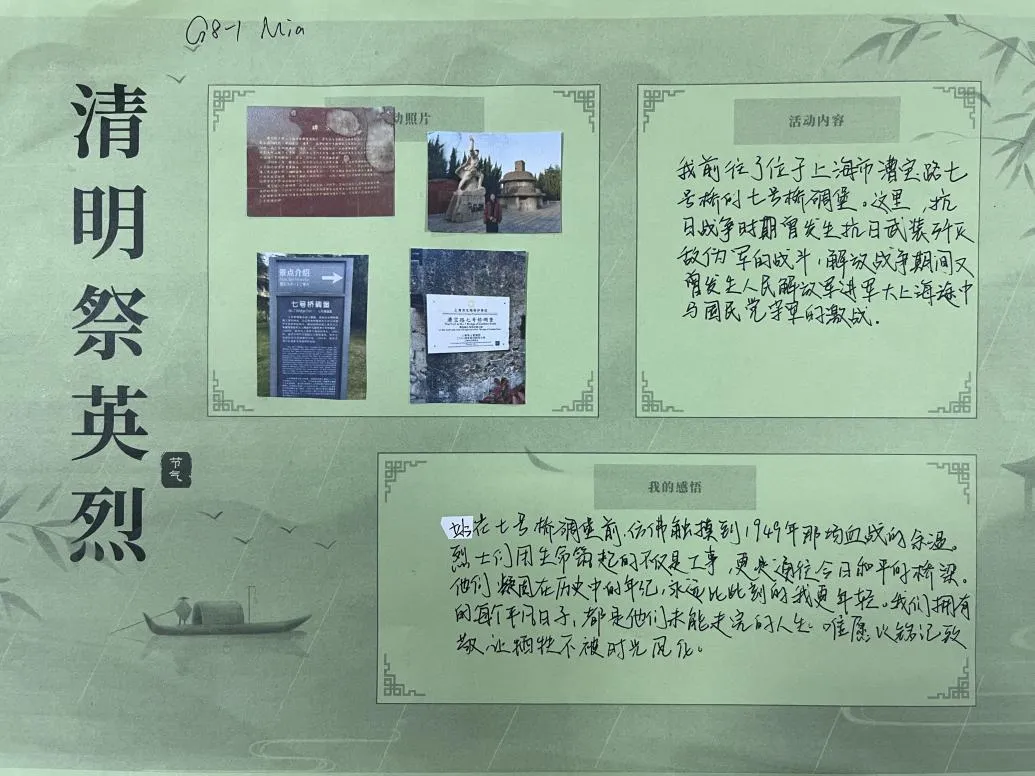 G8-1 Mia
清明祭英烈
节气
动照片
景点介绍
七号桥碉堡
漕宝路七号桥碉堡
活动内容
我前往了位于上海市漕宝路七
号桥的七号桥碉堡。这里，抗
日战争时期曾发生抗日武装歼灭
敌伪军的战斗，解放战争期间又
曾发生人民解放军进军大上海途中
与国民党守军的激战.
我的感悟
站在七号桥碉堡前,仿佛触摸到1949年那场血战的余温。
烈士们用生命筑起的不仅是工事，更是通往今日和平的桥梁。
他们凝固在历史中的年纪，永远比此刻的我更年轻。我们拥有
的每个平凡日子，都是他们未能走完的人生。唯愿以铭记致
敬,让牺牲不被时光风化。